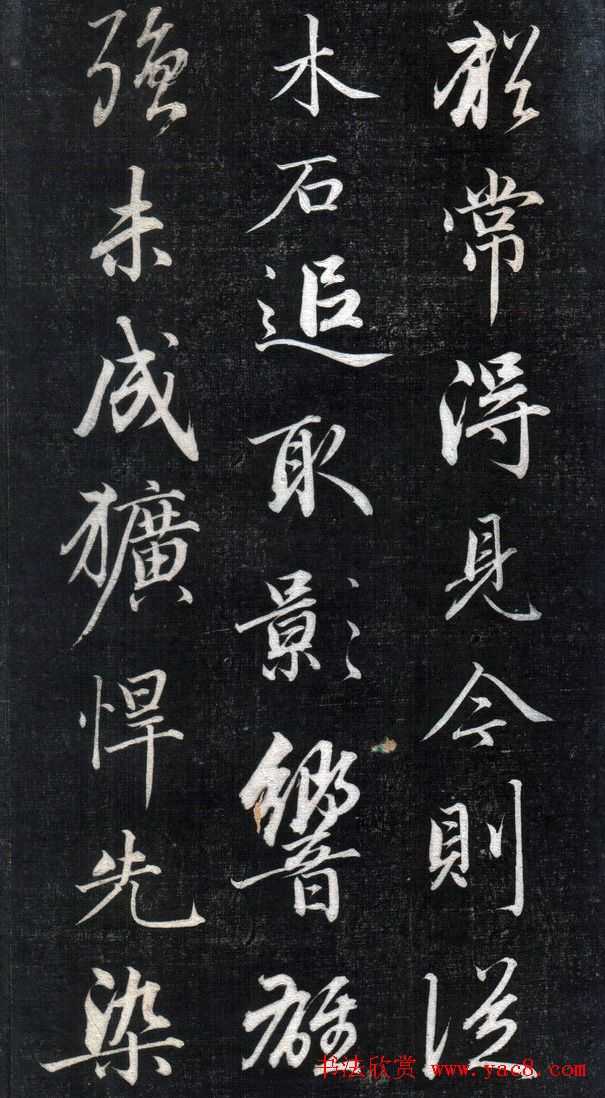 猶常得見今則從
木石追取影響雄
強未成獷悍先染
书法欣赏 www.yac8.com